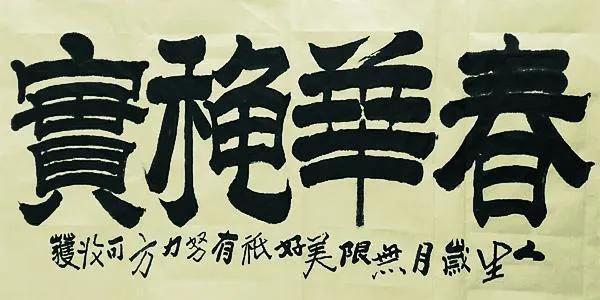 春華穐實
人生歲月無限美好祇有努力方可收獲